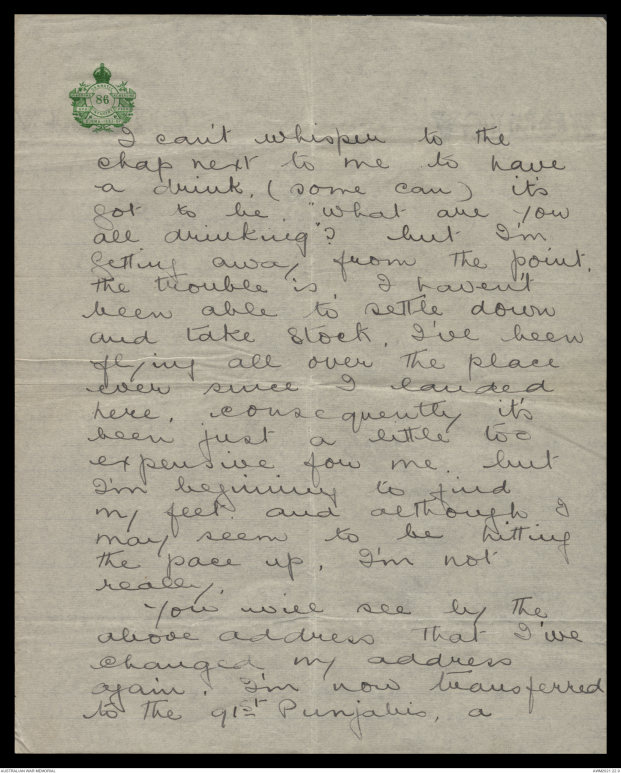 86
I can't whisper to the
chap next to me to have
a drink, (some can) it's
got to be "what are you
all drinking"? but I'm
getting away from the point.
the trouble is, I haven't
been able to settle down
and take stock, I've been
flying all over the place
ever since I landed
here, consequently it's
been just a little too
expensive fow me. but
I'm beginning to find
my feet. and although I
may seem to be hitting
the pace up, I'm not
really.
You will see by the
above address that I've
changed my address
again. I'm now transferred
to the 91st Punjabis, a
AUSTRALIAN WAR MEMORIAL